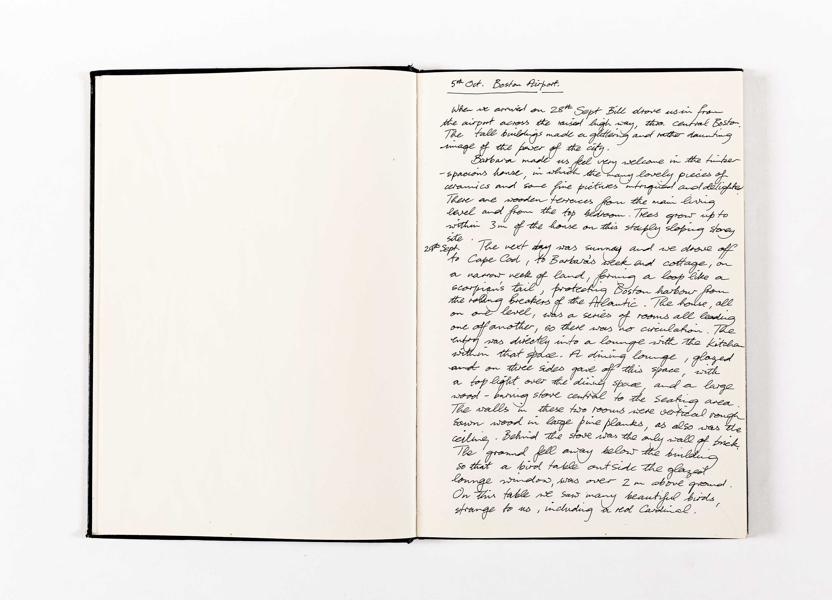 5th Oct. Boston Airport.
When we arrived on 28th Sept Bill drove us in from
the airport across the raised high way, thro. central Boston.
The tall buildings made a glittering and rather daunting
image of the power of the city.
Barbara made us feel very welcome in the timber
-spacious house, in which the many lovely pieces of
ceramics and some fine pictures intrigued and delighted
There are wooden terraces from the main living
level and from the top bedroom. Trees grow up to
within 3m of the house on this steeply sloping stoney
site.
29th Sept. The next day was sunny and we drove off
to Cape Cod, to Barbara's week end cottage, on
a narrow neck of land, forming a loop like a
scorpion's tail, protecting Boston harbour from
the rolling breakers of the Atlantic. The house, all
on one level, was a series of rooms all leading
one off another, so there was no circulation. The
entry was directly into a lounge with the kitchen
within that space. A dining lounge, glazed
and on three sides gave off this space, with
a top light over the dining space, and a large
wood-burning stove central to the seating area.
The walls in these two rooms were vertical rough
sawn wood in large pine planks, as also was the
ceiling. Behind the stove was the only wall of brick.
The ground fell away below the building
so that a bird table outside the glazed
lounge window, was over 2m above ground.
On this table we saw many beautiful birds,
strange to us, including a red Cardinal.